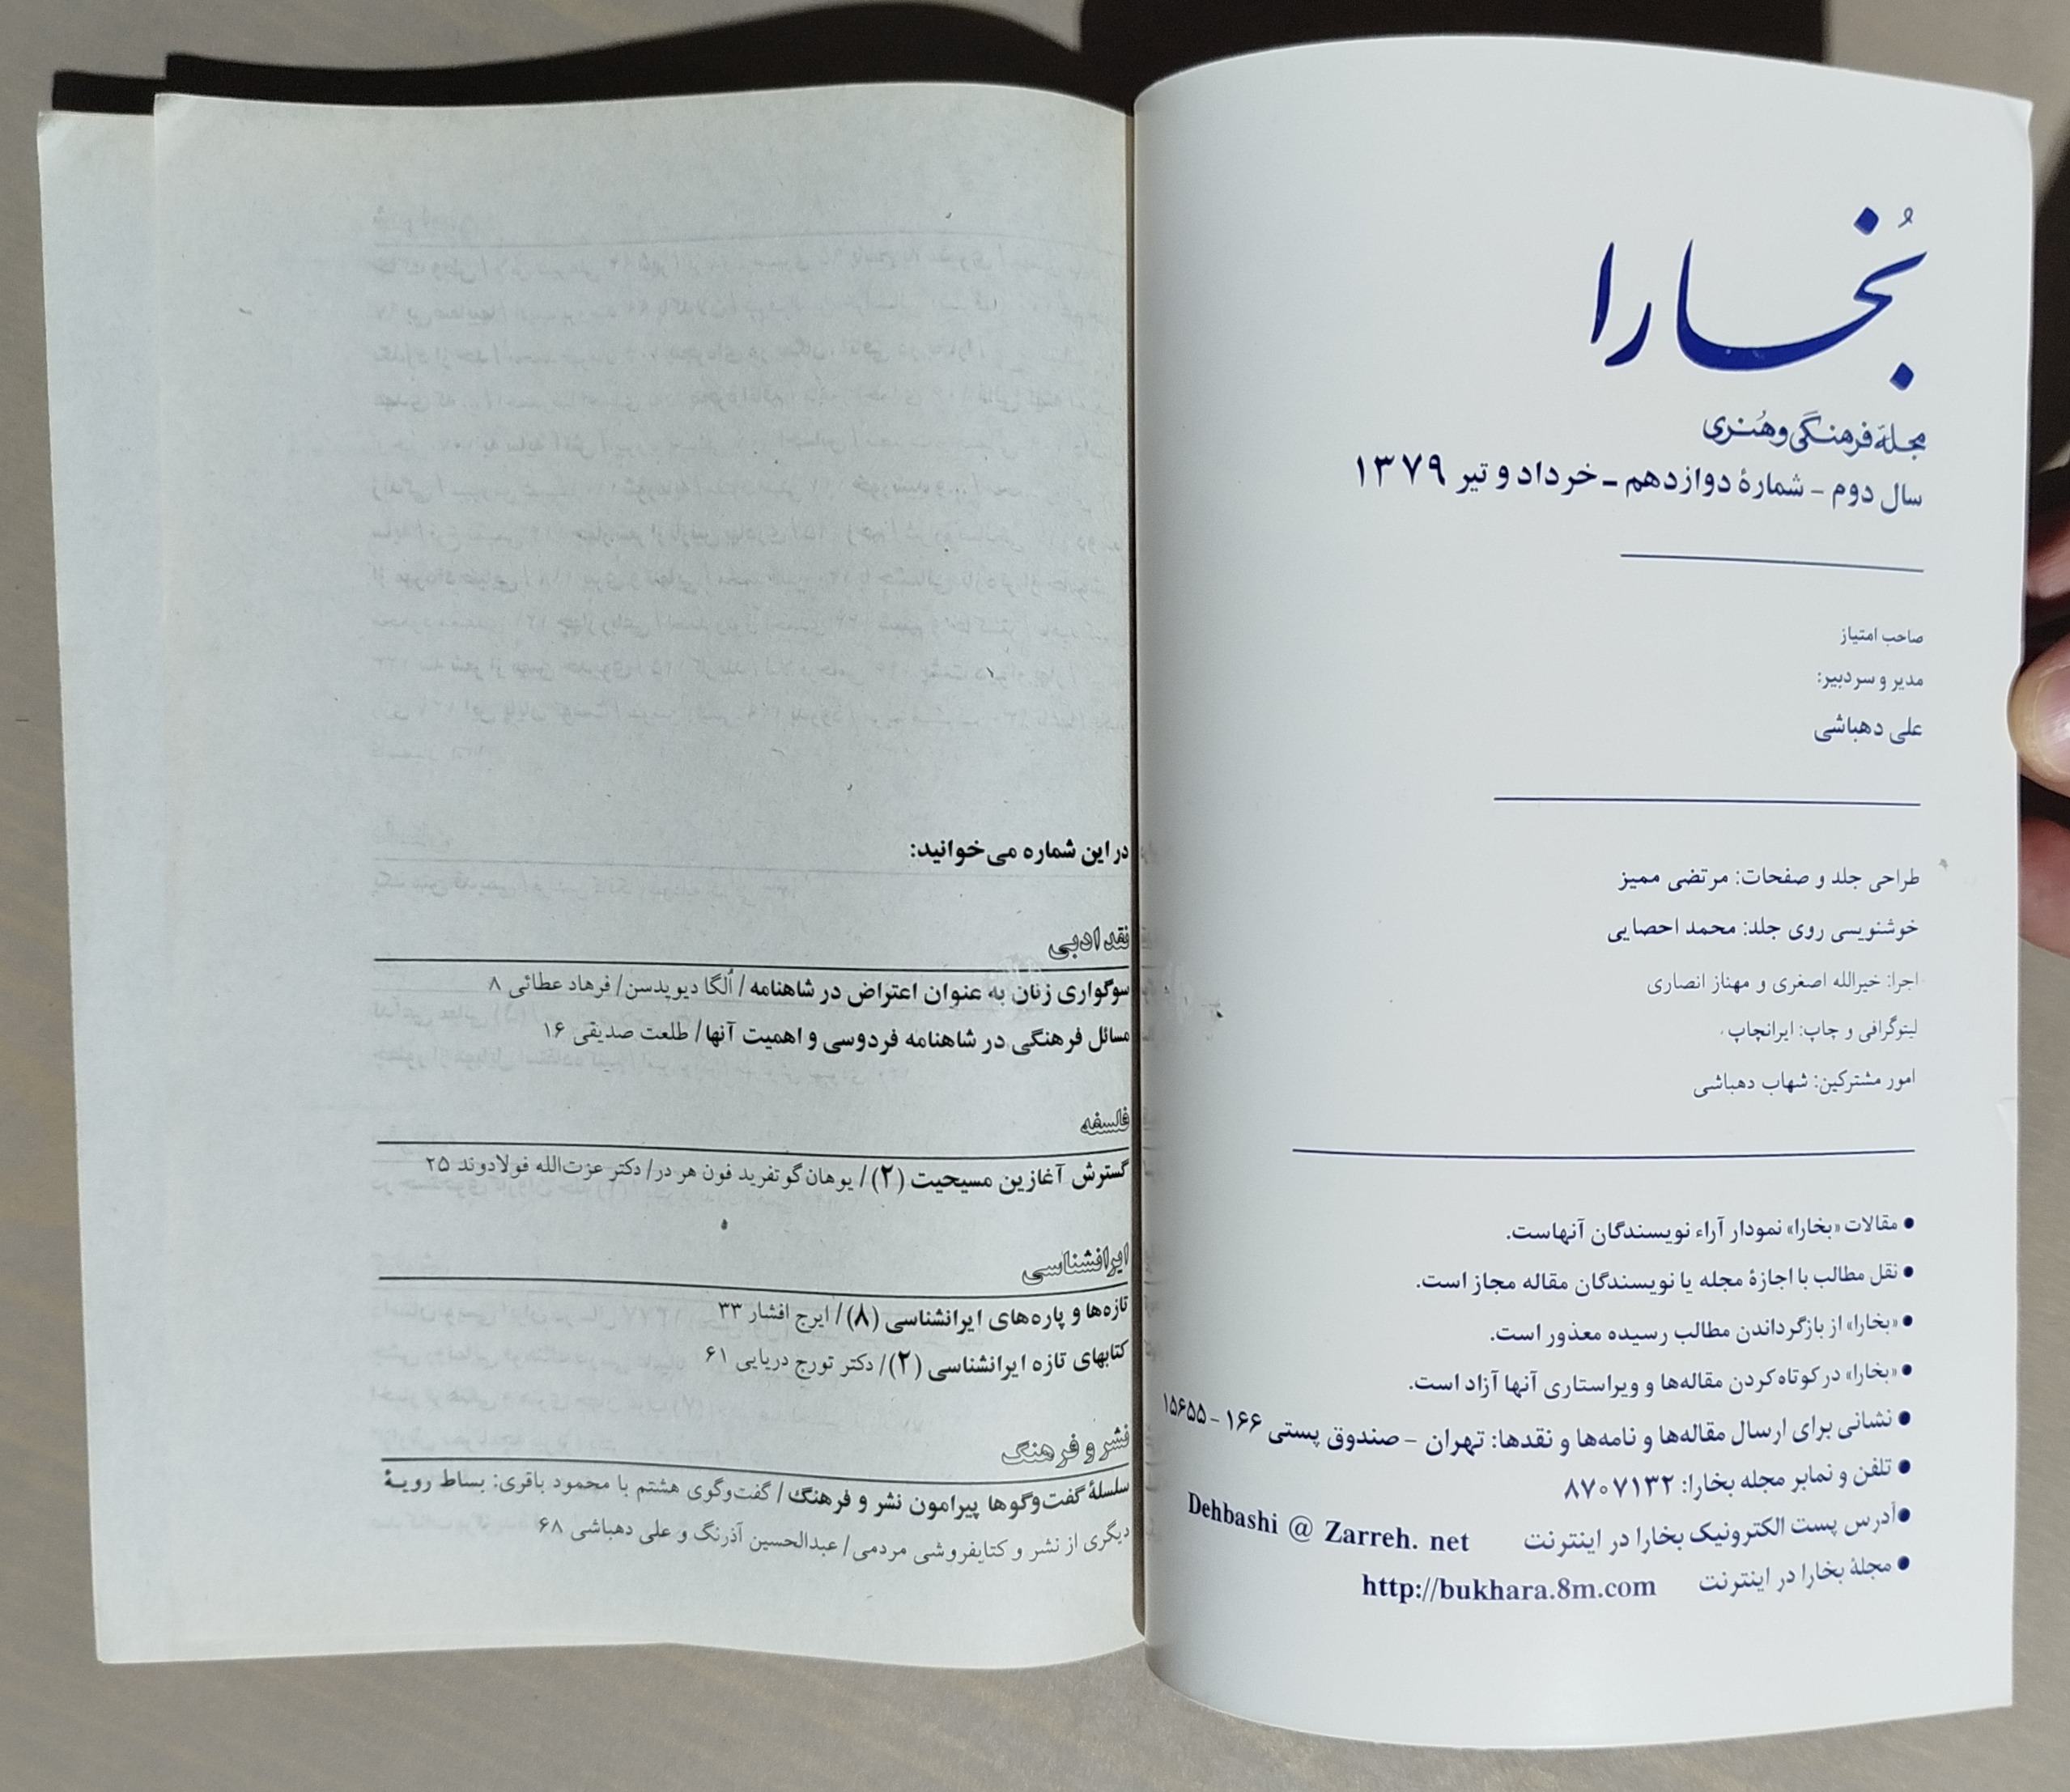 بُخارا
مجلهٔ فرهنگی و هُنری
سال دوم - شمارهٔ دوازدهم - خرداد و تیر ۱۳۷۹
صاحب امتیاز
مدیر و سردبیر:
علی دهباشی
طراحی جلد و صفحات: مرتضی ممیز
خوشنویسی روی جلد: محمد احصایی
اجرا: خیرالله اصغری و مهناز انصاری
لیتوگرافی و چاپ: ایرانچاپ
امور مشترکین: شهاب دهباشی
● مقالات «بخارا» نمودار آراء نویسندگان آنهاست.
● نقل مطالب با اجازهٔ مجله یا نویسندگان مقاله مجاز است.
● «بخارا» از بازگرداندن مطالب رسیده معذور است.
● «بخارا» در کوتاه کردن مقاله‌ها و ویراستاری آنها آزاد است.
● نشانی برای ارسال مقاله‌ها و نامه‌ها و نقدها: تهران - صندوق پستی ۱۶۶ - ۱۵۶۵۵
● تلفن و نمابر مجله بخارا: ۸۷۰۷۱۳۲
● آدرس پست الکترونیک بخارا در اینترنت Dehbashi @ Zarreh. net
● مجلهٔ بخارا در اینترنت http://bukhara.8m.com
در این شماره می‌خوانید:
نقد ادبی
سوگواری زنان به عنوان اعتراض در شاهنامه / اُلگا دیویدسن / فرهاد عطائی ۸
مسائل فرهنگی در شاهنامه فردوسی و اهمیت آنها / طلعت صدیقی ۱۶
فلسفه
گسترش آغازین مسیحیت (۲) / یوهان گوتفرید فون هر در / دکتر عزت‌الله فولادوند ۲۵
ایرانشناسی
تازه‌ها و پاره‌های ایرانشناسی (۸) / ایرج افشار ۳۳
کتابهای تازه ایرانشناسی (۲) / دکتر تورج دریایی ۶۱
نشر و فرهنگ
سلسلهٔ گفت‌وگوها پیرامون نشر و فرهنگ / گفت‌وگوی هشتم با محمود باقری: بساط رویهٔ
دیگری از نشر و کتابفروشی مردمی / عبدالحسین آذرنگ و علی دهباشی ۶۸